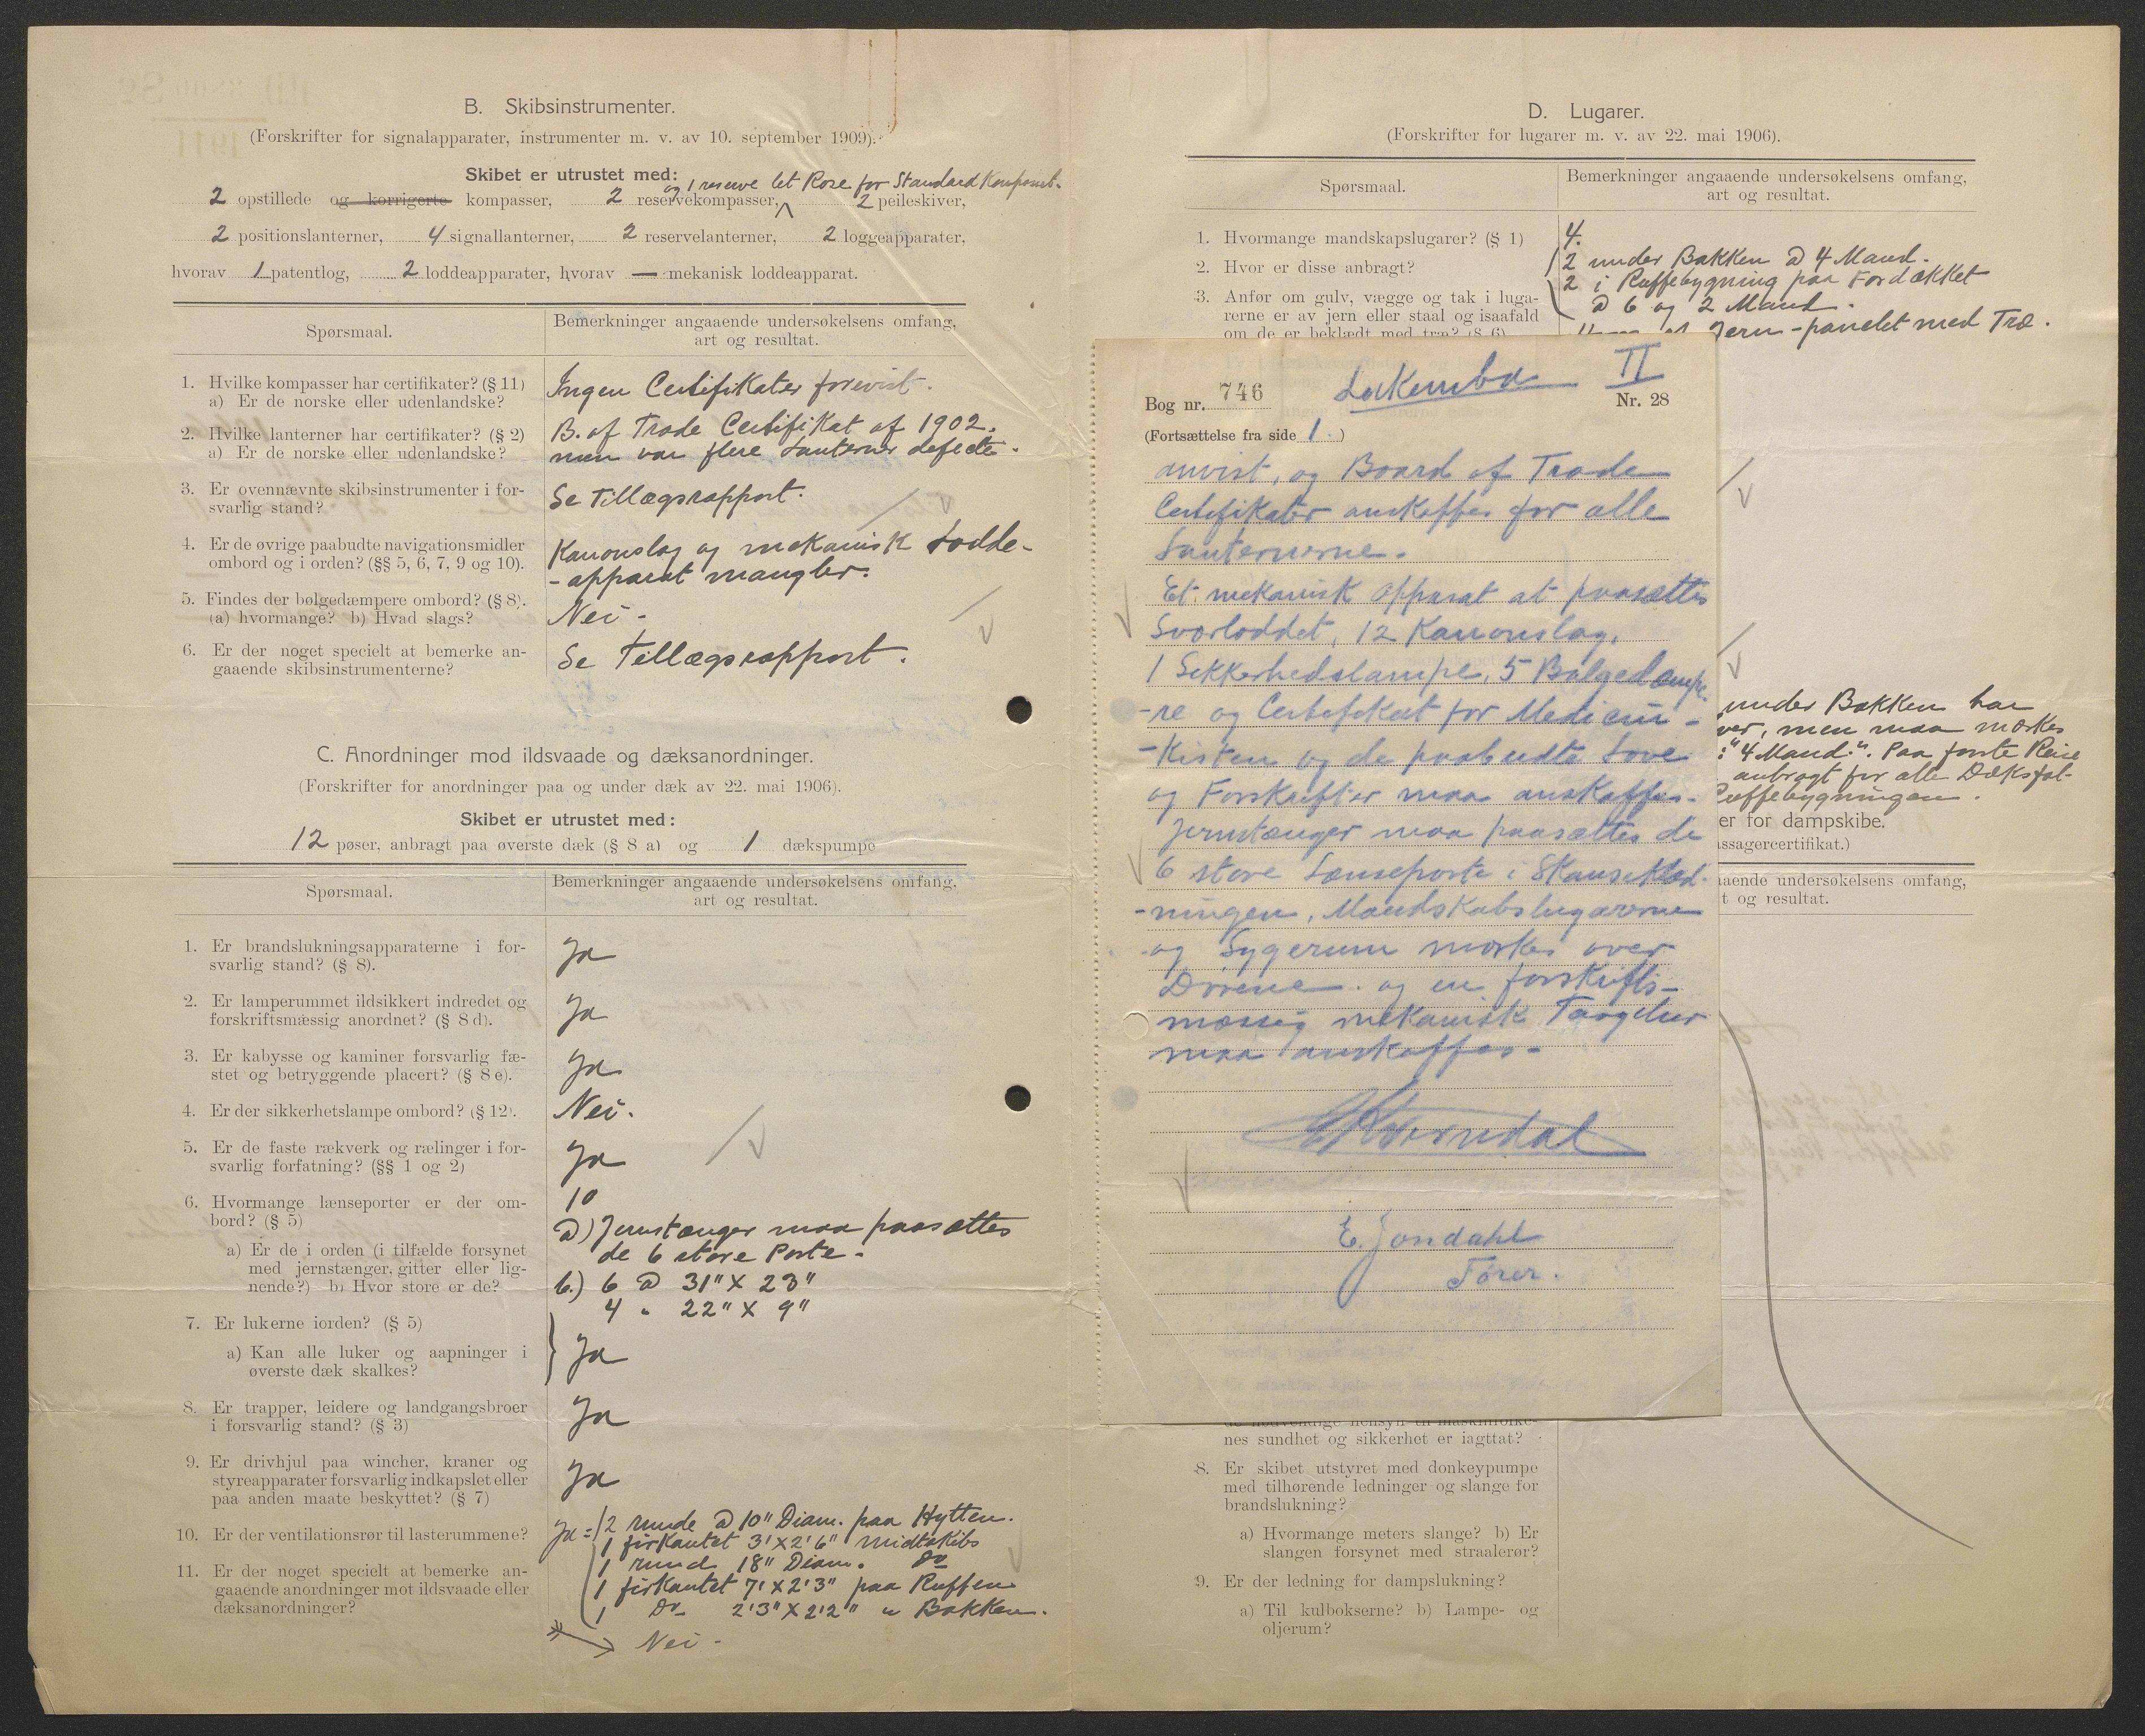 B. Skibsinstrumenter.
(Forskrifter for signalapparater, instrumenter m. v. av 10. september 1909).
Skibet er utrustet med:
og 1 reserve let Rose for Standard Kompasset.
2 opstillede og korrigerte kompasser, 2 reservekompasser, 2 peileskiver,
2 positionslanterner, 4 signallanterner, 2 reservelanterner, 2 loggeapparater,
hvorav 1 patentlog, 2 loddeapparater, hvorav — mekanisk loddeapparat.
Spørsmaal.
Bemerkninger angaaende undersøkelsens omfang,
art og resultat.
1. Hvilke kompasser har certifikater? (§ 11)
a) Er de norske eller udenlandske?
Ingen Certifikater forevist.
2. Hvilke lanterner har certifikater? (§ 2)
a) Er de norske eller udenlandske?
B. of Trade Certifikat af 1902.
men var flere Lanterner defecte.
3. Er ovennævnte skibsinstrumenter i for-
svarlig stand?
Se Tillægsrapport.
4. Er de øvrige paabudte navigationsmidler
ombord og i orden? (§§ 5, 6, 7, 9 og 10).
Kanonslag og mekanisk Lodde-
-apparat mangler.
5. Findes der bølgedæmpere ombord? (§ 8).
(a) hvormange? b) Hvad slags?
Nei.
6. Er der noget specielt at bemerke an-
gaaende skibsinstrumenterne?
Se Tillægsrapport.
C. Anordninger mod ildsvaade og dæksanordninger.
(Forskrifter for anordninger paa og under dæk av 22. mai 1906).
Skibet er utrustet med:
12 pøser, anbragt paa øverste dæk (§ 8 a) og 1 dækspumpe
Spørsmaal.
Bemerkninger angaaende undersøkelsens omfang,
art og resultat.
1. Er brandslukningsapparaterne i for-
svarlig stand? (§ 8).
Ja
2. Er lamperummet ildsikkert indredet og
forskriftsmæssig anordnet? (§ 8 d).
Ja
3. Er kabysse og kaminer forsvarlig fæ-
stet og betryggende placert? (§ 8 e).
Ja
4. Er der sikkerhetslampe ombord? (§ 12).
Nei.
5. Er de faste rækverk og rælinger i for-
svarlig forfatning? (§§ 1 og 2)
Ja
6. Hvormange lænseporter er der om-
bord? (§ 5)
10
a) Er de i orden (i tilfælde forsynet
med jernstænger, gitter eller lig-
nende?) b) Hvor store er de?
a) Jernstænger maa paasættes
de 6 store Porte.
b.) 6 a 31" X 23"
4 " 22" X 9"
7. Er lukerne iorden? (§ 5)
a) Kan alle luker og aapninger i
øverste dæk skalkes?
Ja
8. Er trapper, leidere og landgangsbroer
i forsvarlig stand? (§ 3)
Ja
9. Er drivhjul paa wincher, kraner og
styreapparater forsvarlig indkapslet eller
paa anden maate beskyttet? (§ 7)
Ja
10. Er der ventilationsrør til lasterummene?
Ja = 2 runde a 10" Diam. paa Hytten.
1 firkantet 3' X 2'6" midtskibs
1 rund 18" Diam. Do
1 firkantet 7' X 2'3" paa Ruffen
1 Do 2'3" X 2'2" " Bakken.
11. Er der noget specielt at bemerke an-
gaaende anordninger mot ildsvaade eller
dæksanordninger?
Nei -
D. Lugarer.
(Forskrifter for lugarer m. v. av 22. mai 1906).
Spørsmaal.
Bemerkninger angaaende undersøkelsens omfang,
art og resultat.
1. Hvormange mandskapslugarer? (§ 1)
4.
2. Hvor er disse anbragt?
2 under Bakken a 4 Mand.
2 i Ruffebygning paa Fordækket
a 6 og 2 Mand.
3. Anfør om gulv, vægge og tak i luga-
rerne er av jern eller staal og isaafald
om de er beklædt med træ? (§ 6)
Jern - panelet med Træ.
Bog nr. 746
Lakemba II
Nr. 28
(Fortsættelse fra side 1.)
anvist, og Board of Trade
Certifikater anskaffes for alle
Lanternerne.
Et mekanisk apparat at paasættes
Svorloddet, 12 Kanonslag,
1 Sikkerhedslampe, 5 Bølgedæmpe-
-re og Certifikat for Medicin-
-Kisten og de paabudte Love
og Forskrifter maa anskaffes.
Jernstænger maa paasættes de
6 store Lænseporte i Skansekled-
-ningen, Mandskabslugarerne
og Sygerum mærkes over
Dørene. og en forskrifts-
mæssig mekanisk Taagelur
maa anskaffes-
E. Jondahl
Fører.
under Bakken har
ver, men maa mærkes
: "4 Mand". Paa første Reise
anbragt for alle Dæksfol-
Ruffebygningen.
er for dampskibe.
ssagercertifikat.)
aaende undersøkelsens omfang,
t og resultat.
de nødvendige hensyn til maskinfolke-
nes sundhet og sikkerhet er iagttat?
8. Er skibet utstyret med donkeypumpe
med tilhørende ledninger og slange for
brandslukning?
a) Hvormange meters slange? b) Er
slangen forsynet med straalerør?
9. Er der ledning for dampslukning?
a) Til kulbokserne? b) Lampe- og
oljerum?